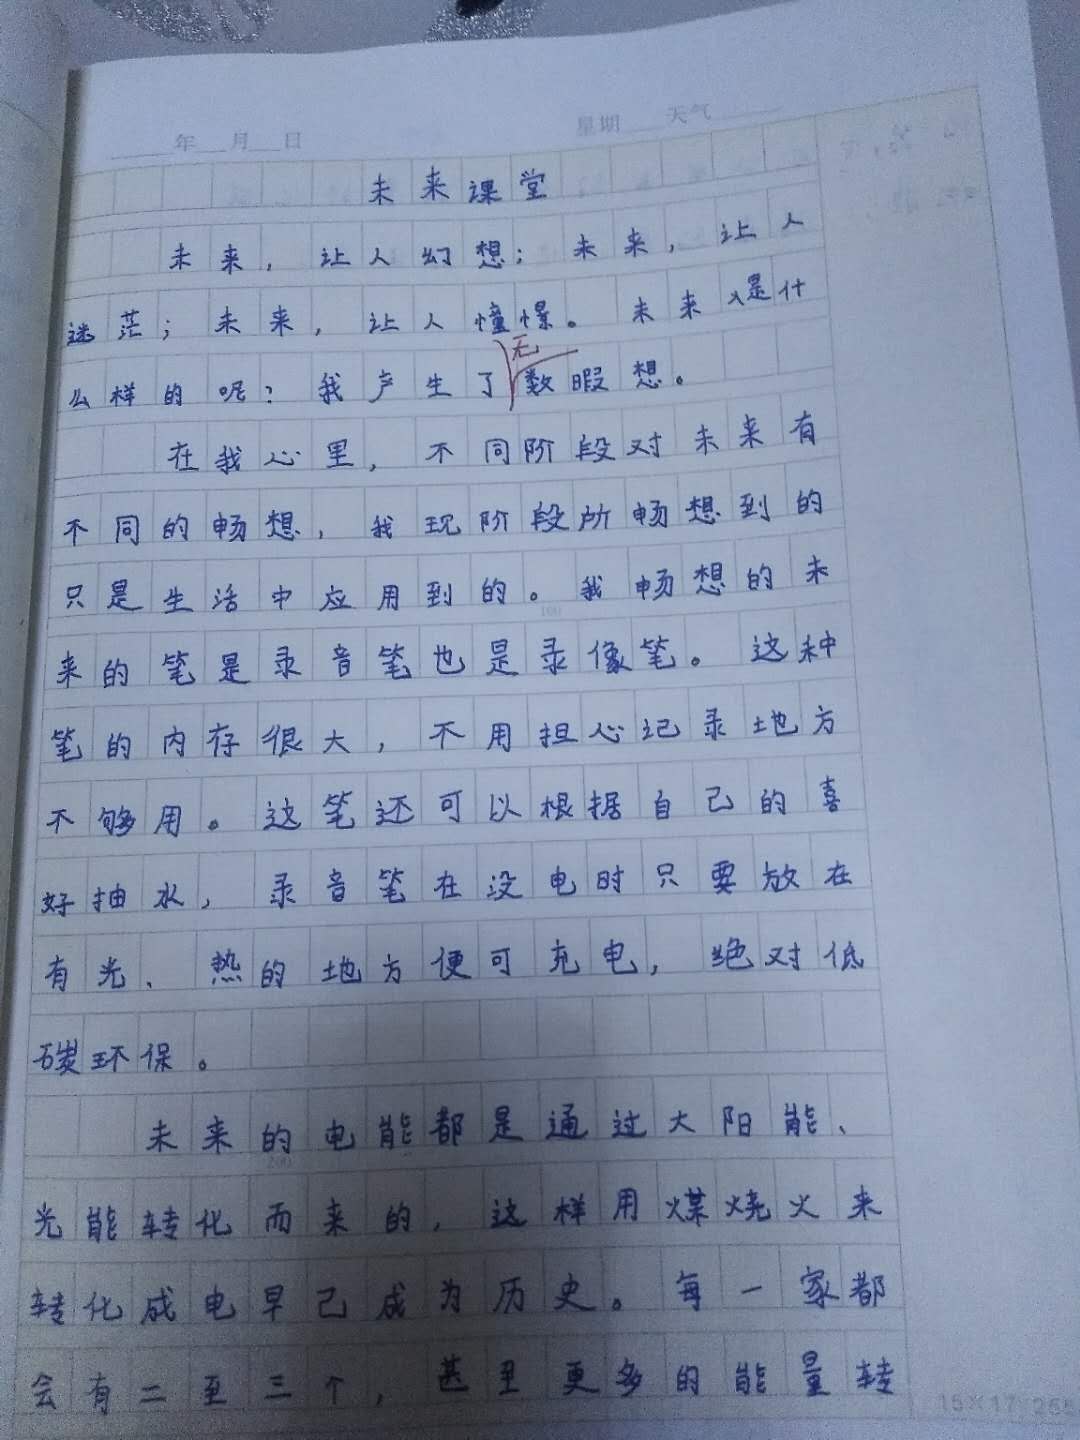 年 月 日 星期 天气
未来课堂
未来，让人幻想；未来，让人
迷茫；未来，让人憧憬。未来是什
无
么样的呢？我产生了数暇想。
在我心里，不同阶段对未来有
不同的畅想，我现阶段所畅想到的
只是生活中应用到的。我畅想的未
100
来的笔是录音笔也是录像笔。这种
笔的内存很大，不用担心记录地方
不够用。这笔还可以根据自己的喜
好抽水，录音笔在没电时只要放在
有光、热的地方便可充电，绝对低
碳环保。
未来的电能都是通过大阳能、
200
光能转化而来的，这样用煤烧火来
转化成电早已成为历史。每一家都
会有二至三个，甚至更多的能量转
15×17